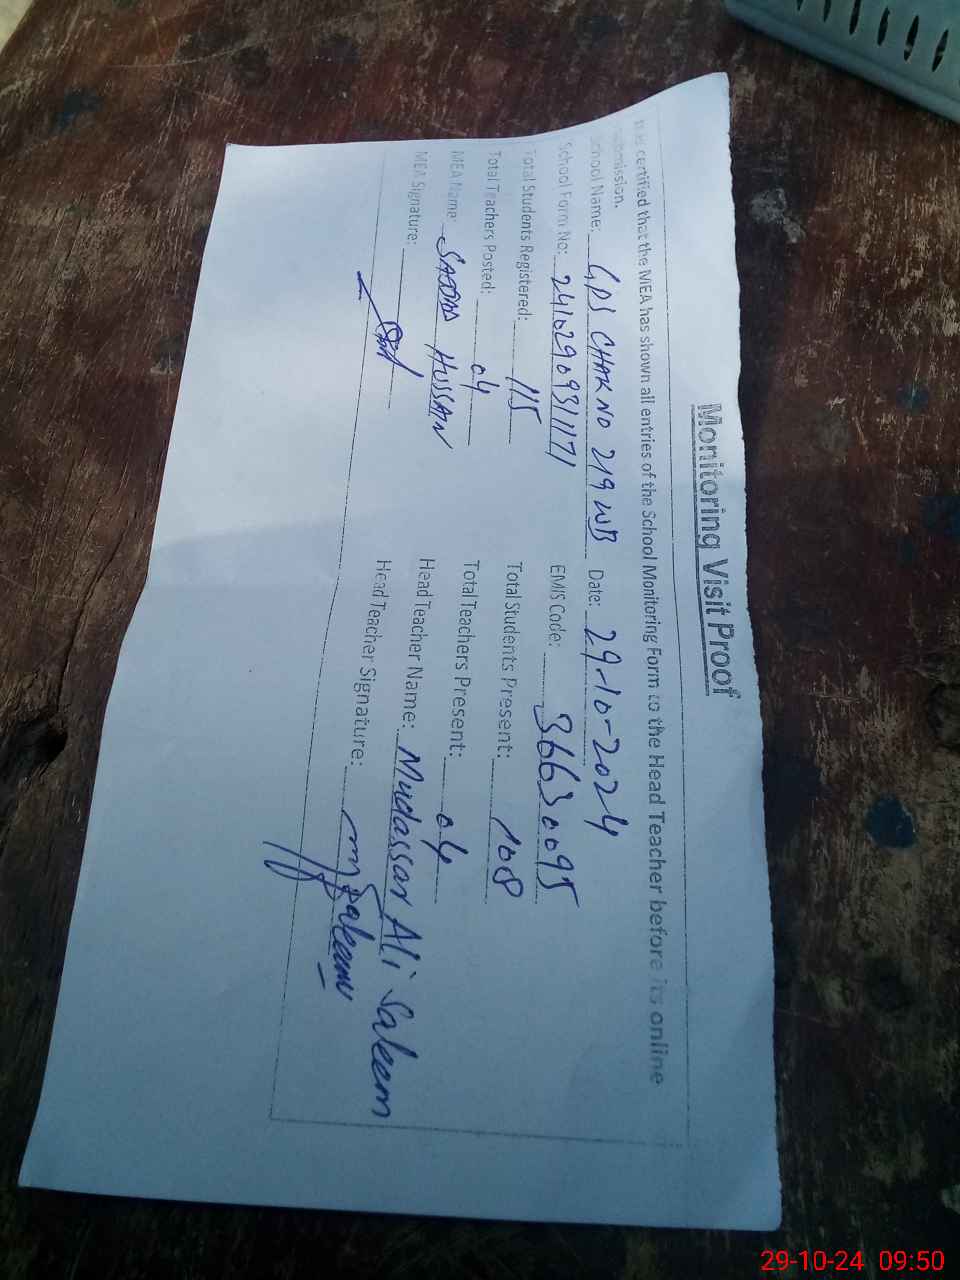 Monitoring Visit Proof
It is certified that the MEA has shown all entries of the School Monitoring Form to the Head Teacher before its online
submission.
School Name: GPS CHAK NO 219 WB Date: 29-10-2024
School Form No: 24102909311171 EMIS Code: 36630095
Total Students Registered: 115 Total Students Present: 108
Total Teachers Posted: 04 Total Teachers Present: 04
MEA Name: HUSSAN Head Teacher Name: Mudassar Ali Saleem
MEA Signature: Head Teacher Signature: m Saleem
29-10-24 09:50